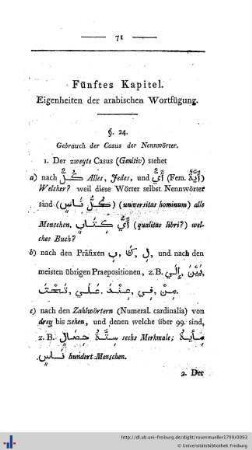 71
Fünftes Kapitel.
Eigenheiten der arabischen Wortfügung.
§. 24.
Gebrauch der Casus der Nennwörter.
1. Der zweyte Casus (Genitiv) stehet
a) nach كُلُّ Alles, Jedes, und أَيُّ (Fem. أَيَّةُ)
Welcher? weil diese Wörter selbst Nennwörter
sind (كُلُّ نَاسٍ) (universitas hominum) alle
Menschen. أَيُّ كِتَابٍ (qualitas libri?) wel-
ches Buch?
b) nach den Präfixen بِ, كَ, لِ und nach den
meisten übrigen Praepositionen, z.B. إِلَى,
مِنْ, فِي, عِنْدَ, عَلَى, تَحْتَ.
c) nach den Zahlwörtern (Numeral. cardinalia) von
drey bis zehen, und denen welche über 99. sind,
z. B. سِتَّةُ خِصَالٍ sechs Merkmale;
نَاسٍ hundert Menschen.
2. Der
http://dl.ub.uni-freiburg.de/diglit/
© Universitätsbibliothek Freiburg